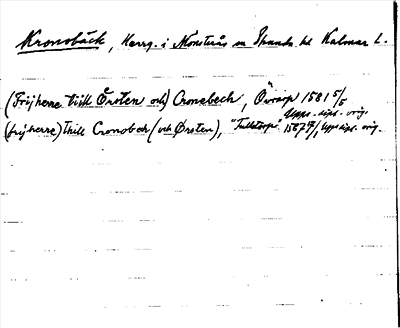 Kronobäck, Herrg. i Mönsterås sn Stranda hd Kalmar L.
(Frijherre tiill Örsten och) Cronebeck, Öwrarp 1581 5/5
Upps. dipl. orig.
(frijherre) thill Cronobeck (och Ørsten), "Tulletorpe" 1587 /1 Upps dipl. orig.